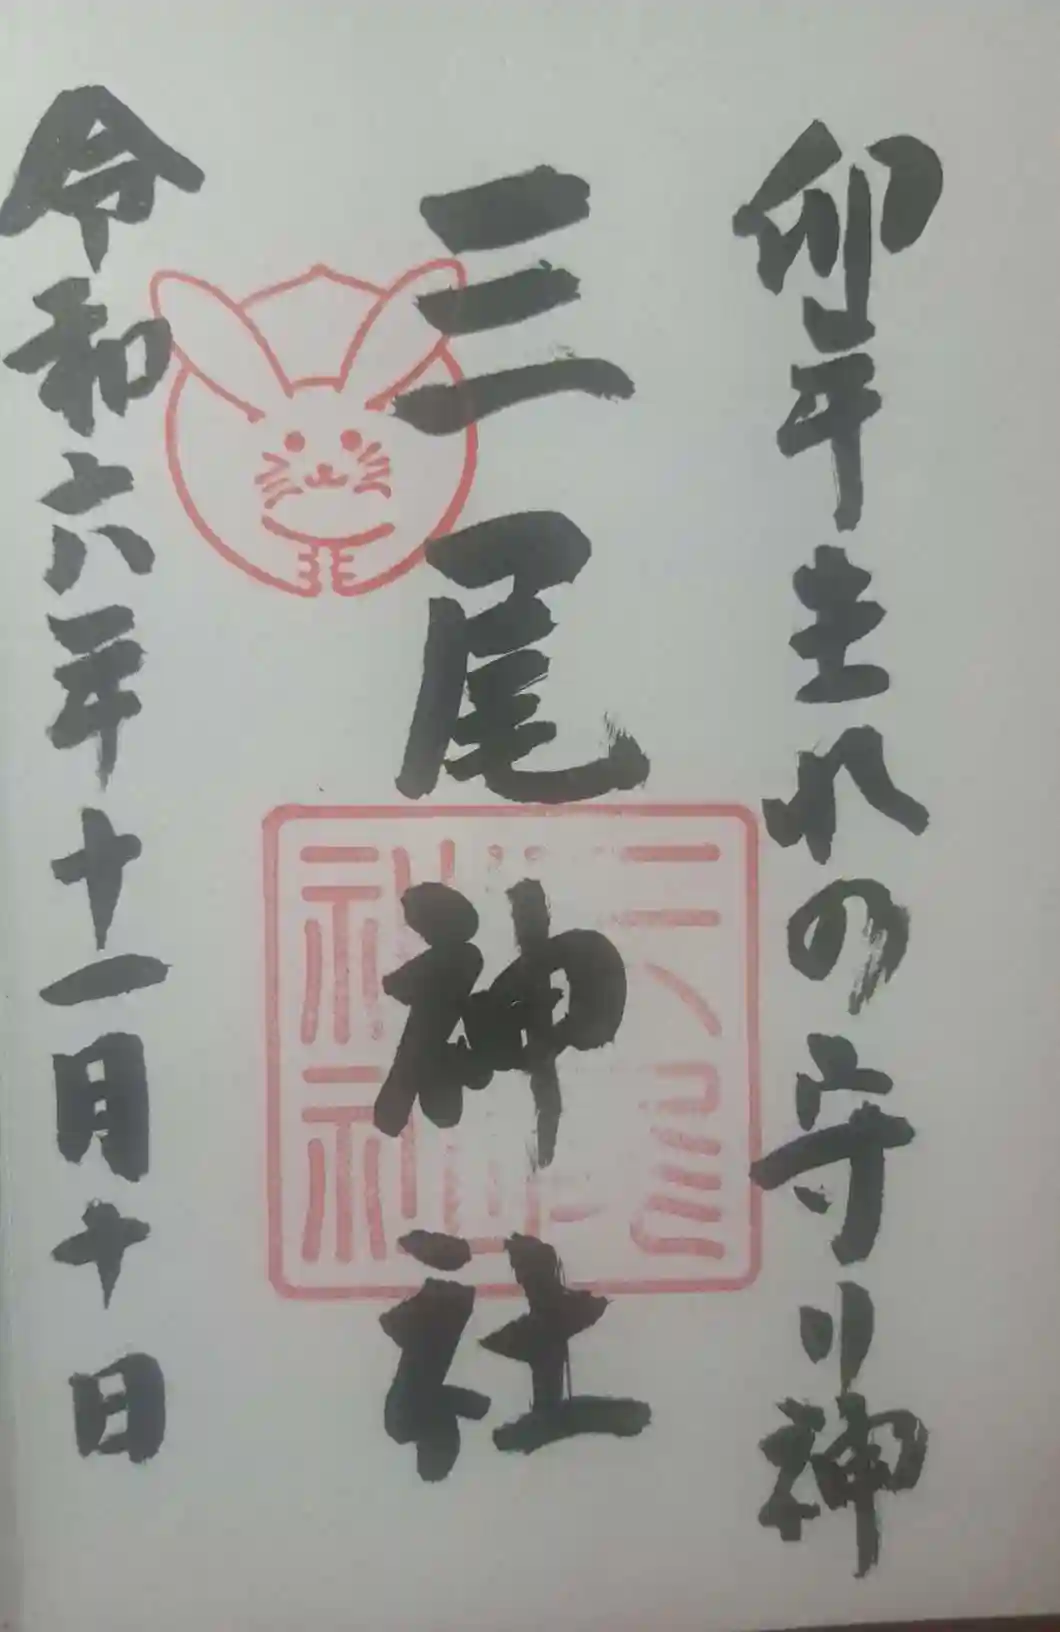 卯年生れの守り神
三尾神社
三尾神社
令和六年十一月十日